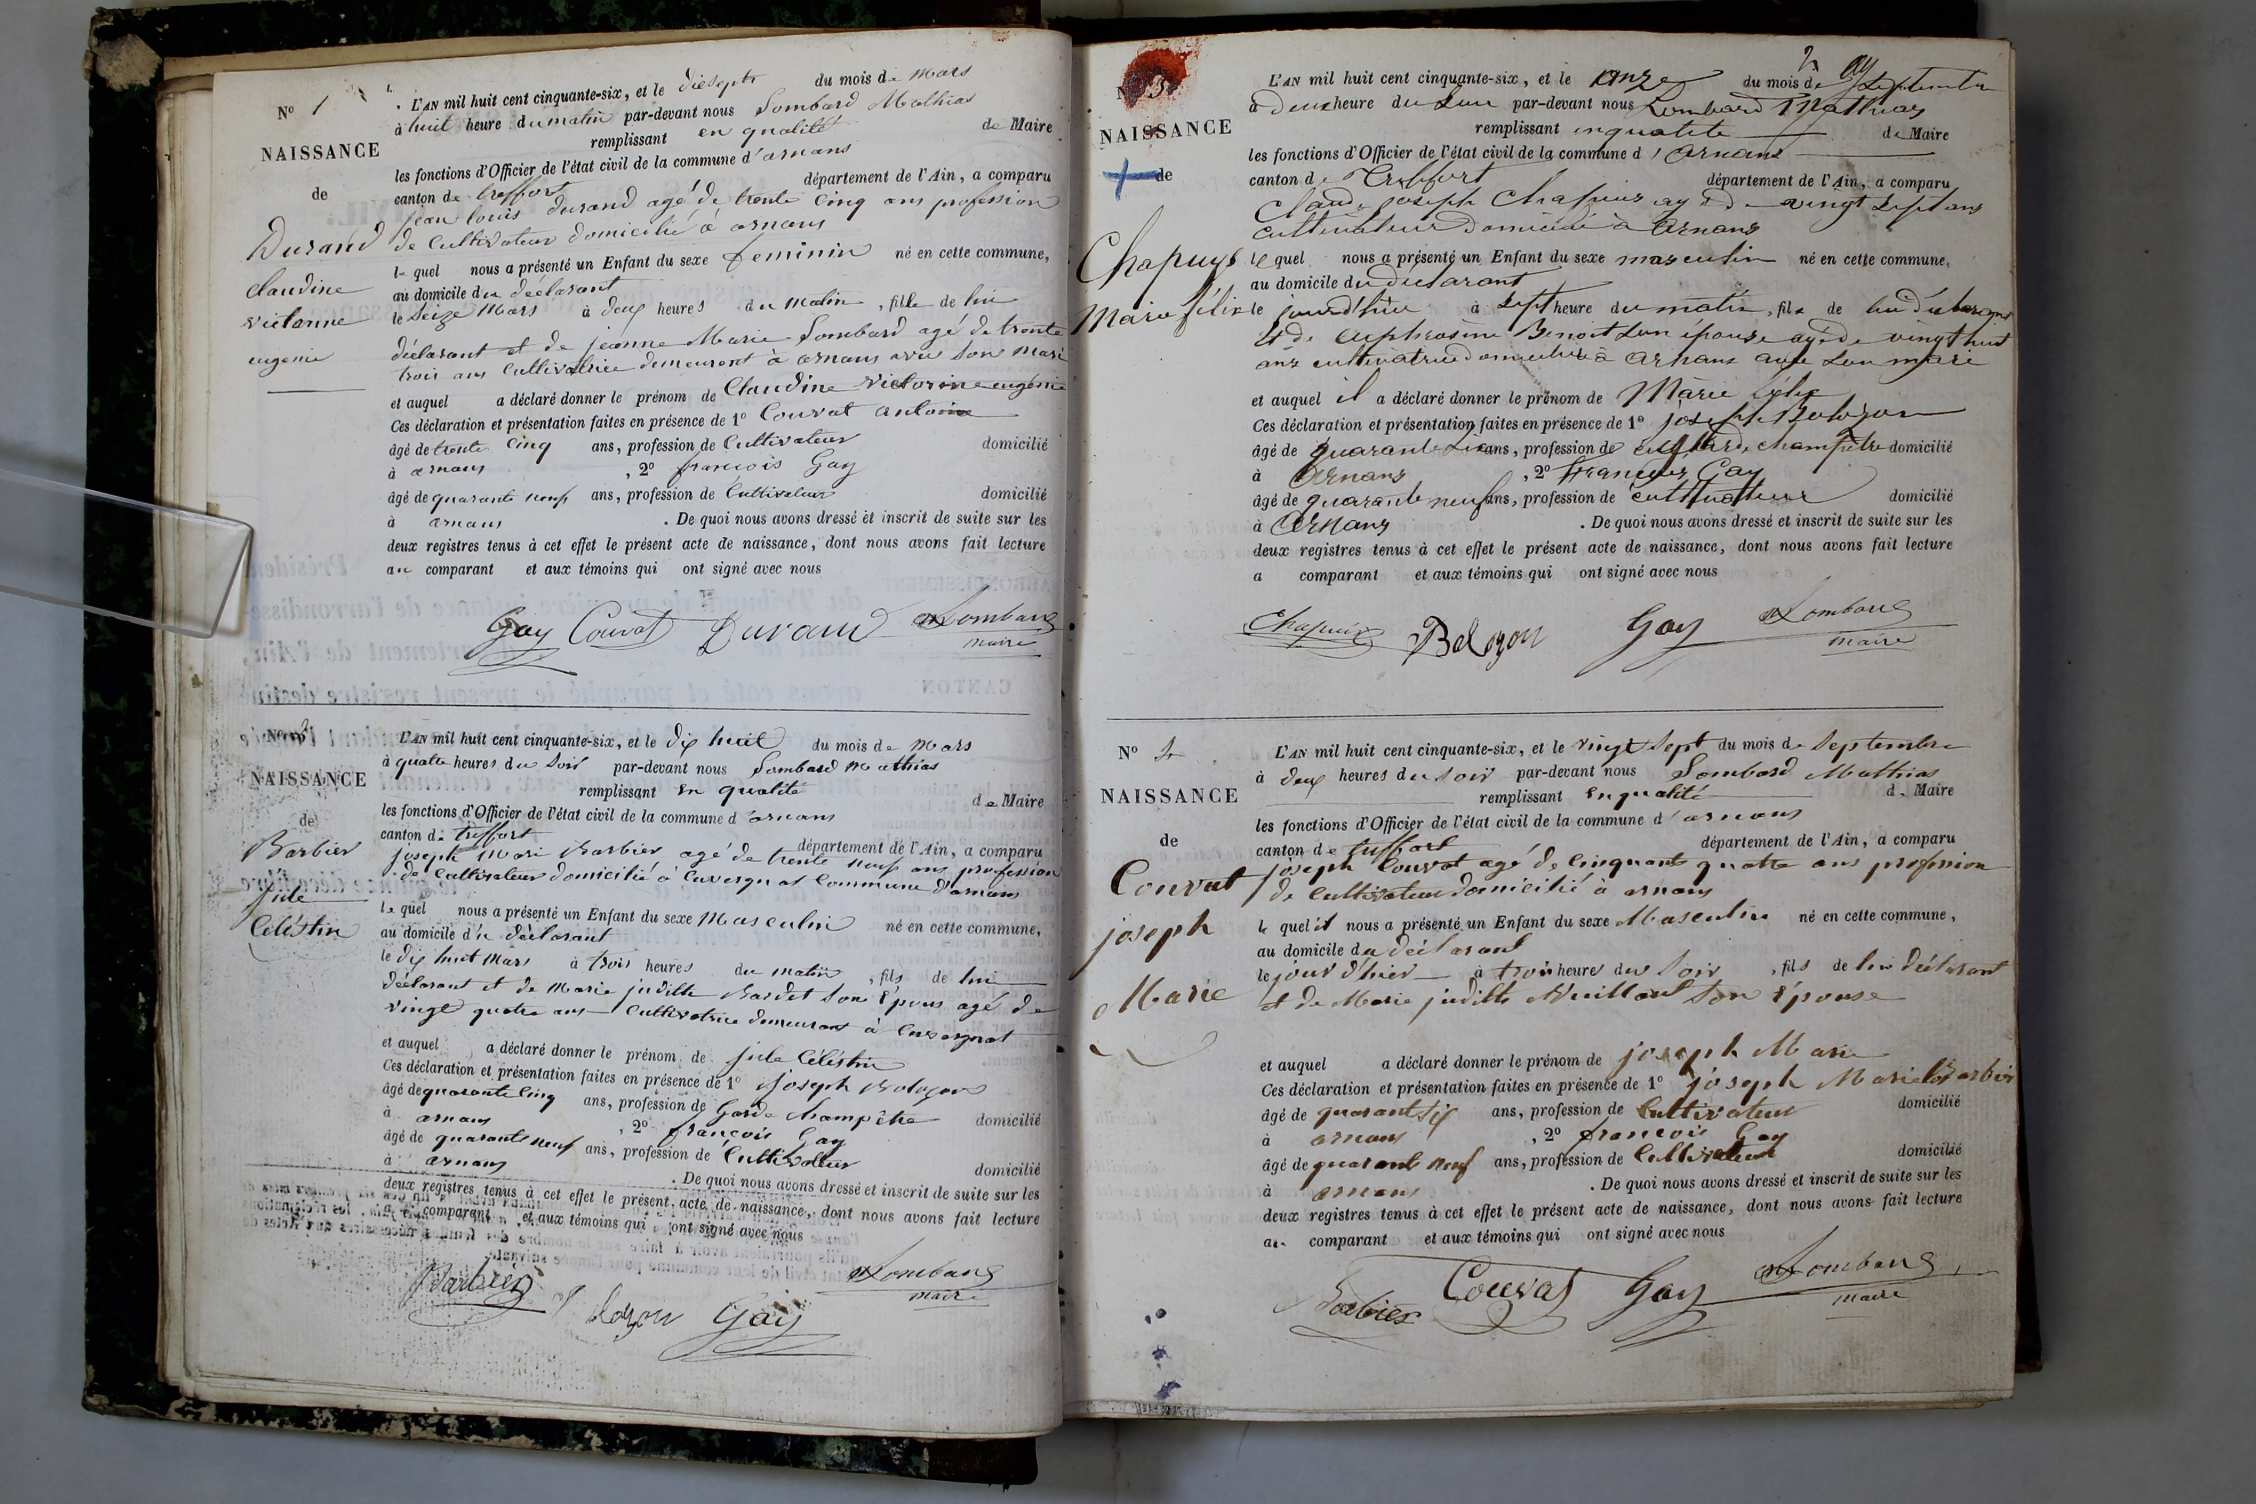 N° 1
NAISSANCE
de
Durand
Claudine
victorine
eugénie
L'AN mil huit cent cinquante-six, et le diesept du mois de Mars
à huit heure du matin par-devant nous Lombard Mathias
remplissant en qualité de Maire
les fonctions d'Officier de l'état civil de la commune d'arnans
canton de treffort département de l'Ain, a comparu
jean louis durand agé de trente cinq ans profession
de Cultivateur domicilié à arnans
le quel nous a présenté un Enfant du sexe feminin né en cette commune,
au domicile du déclarant
le seize Mars à deux heures du Matin, fille de lui
déclarant et de jeanne Marie Lombard agé de trente
trois ans Cultivatrice demeurant à arnans avec son Mari
et auquel a déclaré donner le prénom de Claudine victorine eugénie
Ces déclaration et présentation faites en présence de 1° Couvat antoine
âgé de trente cinq ans, profession de Cultivateur domicilié
à arnans, 2° francois Gay
âgé de quarante neuf ans, profession de Cultivateur domicilié
à arnans. De quoi nous avons dressé et inscrit de suite sur les
deux registres tenus à cet effet le présent acte de naissance, dont nous avons fait lecture
au comparant et aux témoins qui ont signé avec nous
Gay Couvat Durand Lombard
maire
N° 2
NAISSANCE
de
Barbier
jule
Céléstin
L'AN mil huit cent cinquante-six, et le dix huit du mois de Mars
à quatre heures du Soir par-devant nous Lombard Mathias
remplissant en qualité de Maire
les fonctions d'Officier de l'état civil de la commune d'arnans
canton de treffort département de l'Ain, a comparu
joseph Mari Barbier agé de trente neuf ans profession
de Cultivateur domicilié à Cuvergnat Commune d'arnans
le quel nous a présenté un Enfant du sexe Masculin né en cette commune,
au domicile du déclarant
le dix huit Mars à trois heures du matin, fils de lui
déclarant et de Marie judith Bardet son épous agé de
vingt quatre ans Cultivatrice demeurant à Cuvergnat
et auquel a déclaré donner le prénom de jule Céléstin
Ces déclaration et présentation faites en présence de 1° joseph Bolozon
âgé de quarante cinq ans, profession de Garde Champêtre domicilié
à arnans, 2° francois Gay
âgé de quarante neuf ans, profession de Cultivateur domicilié
à arnans. De quoi nous avons dressé et inscrit de suite sur les
deux registres tenus à cet effet le présent acte de naissance, dont nous avons fait lecture
comparant et aux témoins qui ont signé avec nous
Barbier Bolozon Gay Lombard
maire
2
N° 3
NAISSANCE
de
Chapuys
Marie félix
L'AN mil huit cent cinquante-six, et le onze du mois de Septembre
à deux heure du Soir par-devant nous Lombard Mathias
remplissant enqualité de Maire
les fonctions d'Officier de l'état civil de la commune d'Arnans
canton de Treffort département de l'Ain, a comparu
Claude joseph Chapuis agé de vingt Sept ans
cultivateur domicilié à Arnans
le quel nous a présenté un Enfant du sexe masculin né en cette commune,
au domicile du déclarant
le jourd'hui à Sept heure du matin, fils de lui déclarant
et de euphrosine Benoit son épouse agé de vingt huit
ans cultivatrice domiciliée à Arnans avec son mari
et auquel il a déclaré donner le prénom de Marie félix
Ces déclaration et présentation faites en présence de 1° joseph Bolozon
âgé de quarante Six ans, profession de garde champêtre domicilié
à Arnans, 2° françois Gay
âgé de quarante neuf ans, profession de cultivateur domicilié
à Arnans. De quoi nous avons dressé et inscrit de suite sur les
deux registres tenus à cet effet le présent acte de naissance, dont nous avons fait lecture
a comparant et aux témoins qui ont signé avec nous
Chapuis Bolozon Gay Lombard
maire
N° 4
NAISSANCE
de
Couvat
joseph
Marie
L'AN mil huit cent cinquante-six, et le vingt Sept du mois de Septembre
à deux heures du soir par-devant nous Lombard Mathias
remplissant enqualité de Maire
les fonctions d'Officier de l'état civil de la commune d'arnans
canton de treffort département de l'Ain, a comparu
joseph Couvat agé de Cinquante quatre ans profession
de Cultivateur domicilié à arnans
le quel il nous a présenté un Enfant du sexe Masculin né en cette commune,
au domicile du déclarant
le jour d'hier à trois heure du Soir, fils de lui déclarant
et de Marie judith son épouse
et auquel a déclaré donner le prénom de joseph Marie
Ces déclaration et présentation faites en présence de 1° joseph Marie Barbier
âgé de quarant six ans, profession de Cultivateur domicilié
à arnans, 2° francois Gay
âgé de quarante neuf ans, profession de Cultivateur domicilié
à arnans. De quoi nous avons dressé et inscrit de suite sur les
deux registres tenus à cet effet le présent acte de naissance, dont nous avons fait lecture
au comparant et aux témoins qui ont signé avec nous
Barbier Couvat Gay Lombard
maire